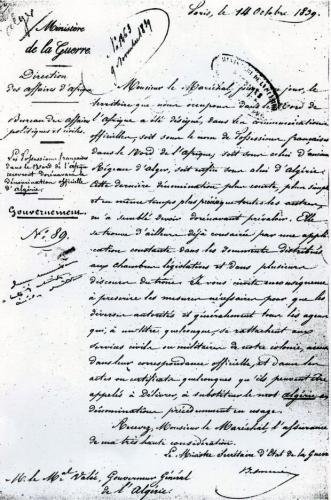 Paris, le 14 Octobre 1839.
Ministère
de la Guerre.
Direction
des affaires d'Afrique
Bureau des affaires
politiques et civiles.
Les Possessions françaises
dans le Nord de l'Afrique
recevront dorénavant la
dénomination officielle
d'Algérie.
Gouvernement
N.° 89.
Monsieur le Maréchal, jusqu'à ce jour, le
territoire que nous occupons dans le Nord de
l'Afrique a été désigné, dans les communications
officielles, soit sous le nom de Possessions françaises
dans le Nord de l'Afrique, soit sous celui d'ancienne
Régence d'Alger, soit enfin sous celui d'Algérie.
Cette dernière dénomination plus courte, plus simple
et en même temps plus précise que toutes les autres,
m'a semblé devoir dorénavant prévaloir. Elle
se trouve d'ailleurs déjà consacrée par une appli-
cation constante dans les documents distribués
aux chambres législatives et dans plusieurs
discours du trône. Je vous invite en conséquence,
à prescrire les mesures nécessaires pour que les
diverses autorités et généralement tous les agents
qui, à un titre quelconque, se rattachent aux
services civils ou militaires de notre colonie, aient
dans leur correspondance officielle, et dans les
actes ou certificats quelconques qu'ils peuvent être
appelés à délivrer, à substituer le mot algérie aux
dénominations précédemment en usage.
Recevez, Monsieur le Maréchal, l'assurance
de ma très haute considération.
Le Ministre Secrétaire d'État de la Guerre
M. le M.al Valée, Gouverneur Général
de l'Algérie.